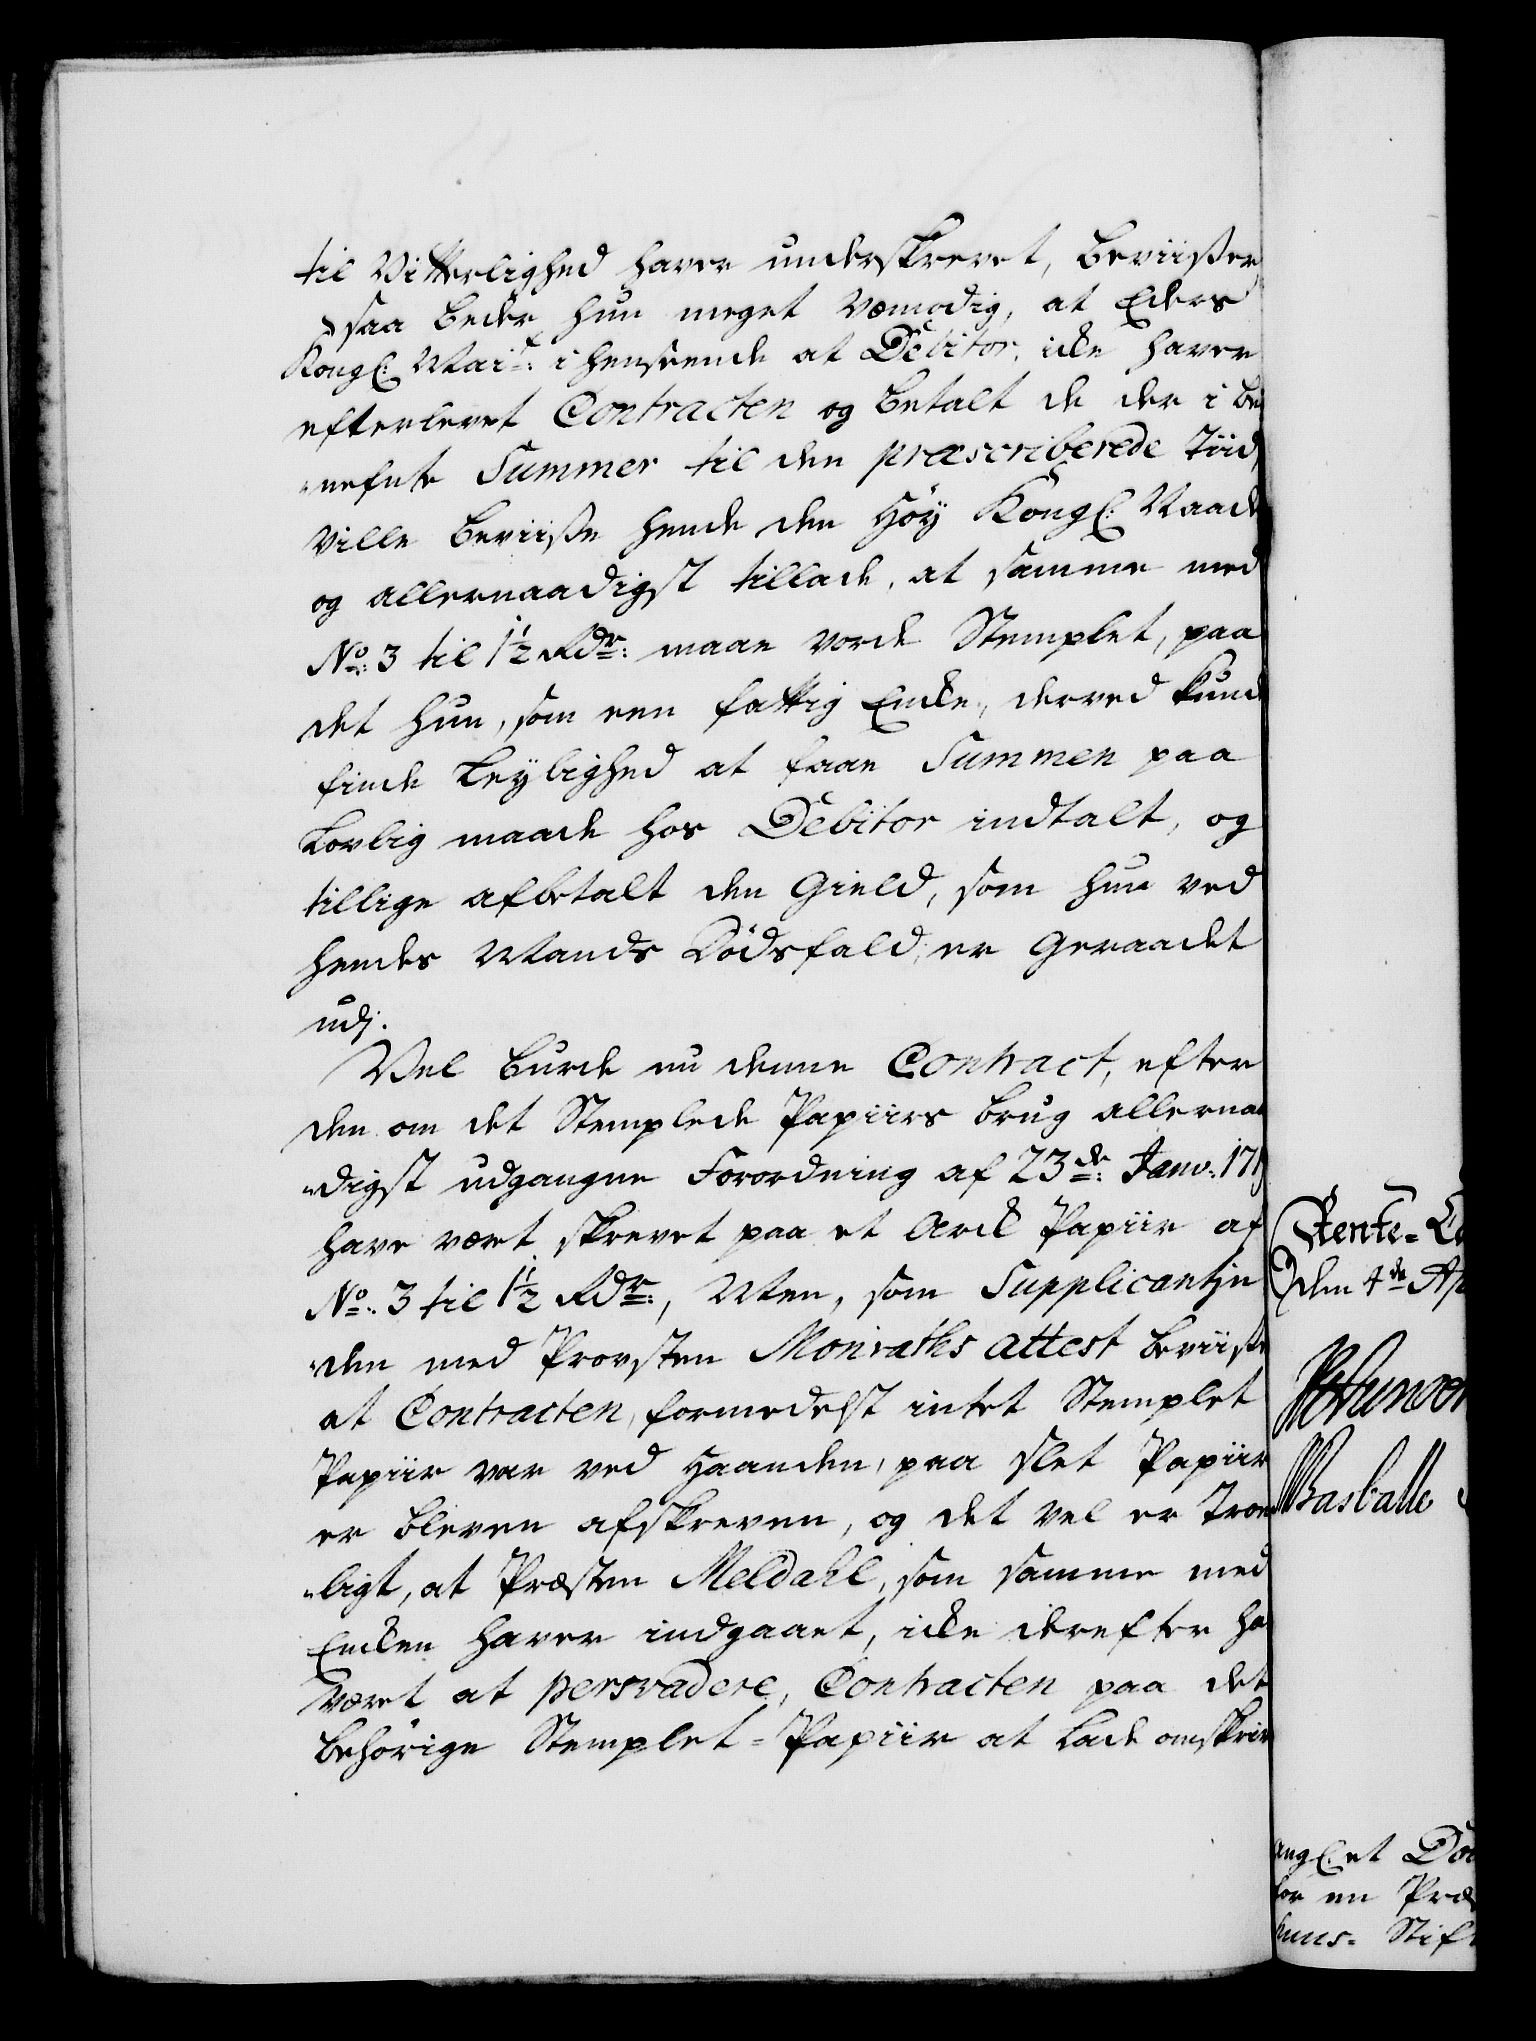 til Vitterlighed haver underskrevet, beviiser,
saa beder hun meget Vemodig, at Eders
Kongl: Mait: i henseende at Debitor, icke haver
efterlevet Contracten og betalt de der i be
nefnte Summer til den præscriberede Tiid,
Ville beviise hende den Høÿ Kongl: Naade
og allernaadigst tillade, at samme med
No: 3 til 1½ Rdr: maae vorde Stemplet, paa
det hun, som een fattig Encke, derved kunde
finde Leÿlighed at faae Summen paa
Lovlig maade hos Debitor indtalt, og
tillige afbetalt den Gield, som hun ved
hendes Mands Dødsfald, er Geraadet
udj.
Vel burde nu denne Contract, efter
den om det Stemplede Papiirs brug allernaa
digst udgangne Forordning af 23de: Janv: 171
have veret skrevet paa et Arck Papiir af
No: 3 til 1½ Rdr:, Men, som Supplicantjn
den med Provsten Monraths attest beviiste
at Contracten, formedelst intet Stemplet
Papiir var ved Haanden, paa slet Papiir
er bleven afskreven, og det vel er Troe
ligt, at Præsten Meldahl, som samme med
Encken haver indgaaet, icke derefter ha
Veret at persvadere, Contracten paa det
behørige Stemplet-Papiir at lade omskriv
Rente-Ca
den 4de Ap
Basballe
angl. et Doc
for en Præs
huus-Stift